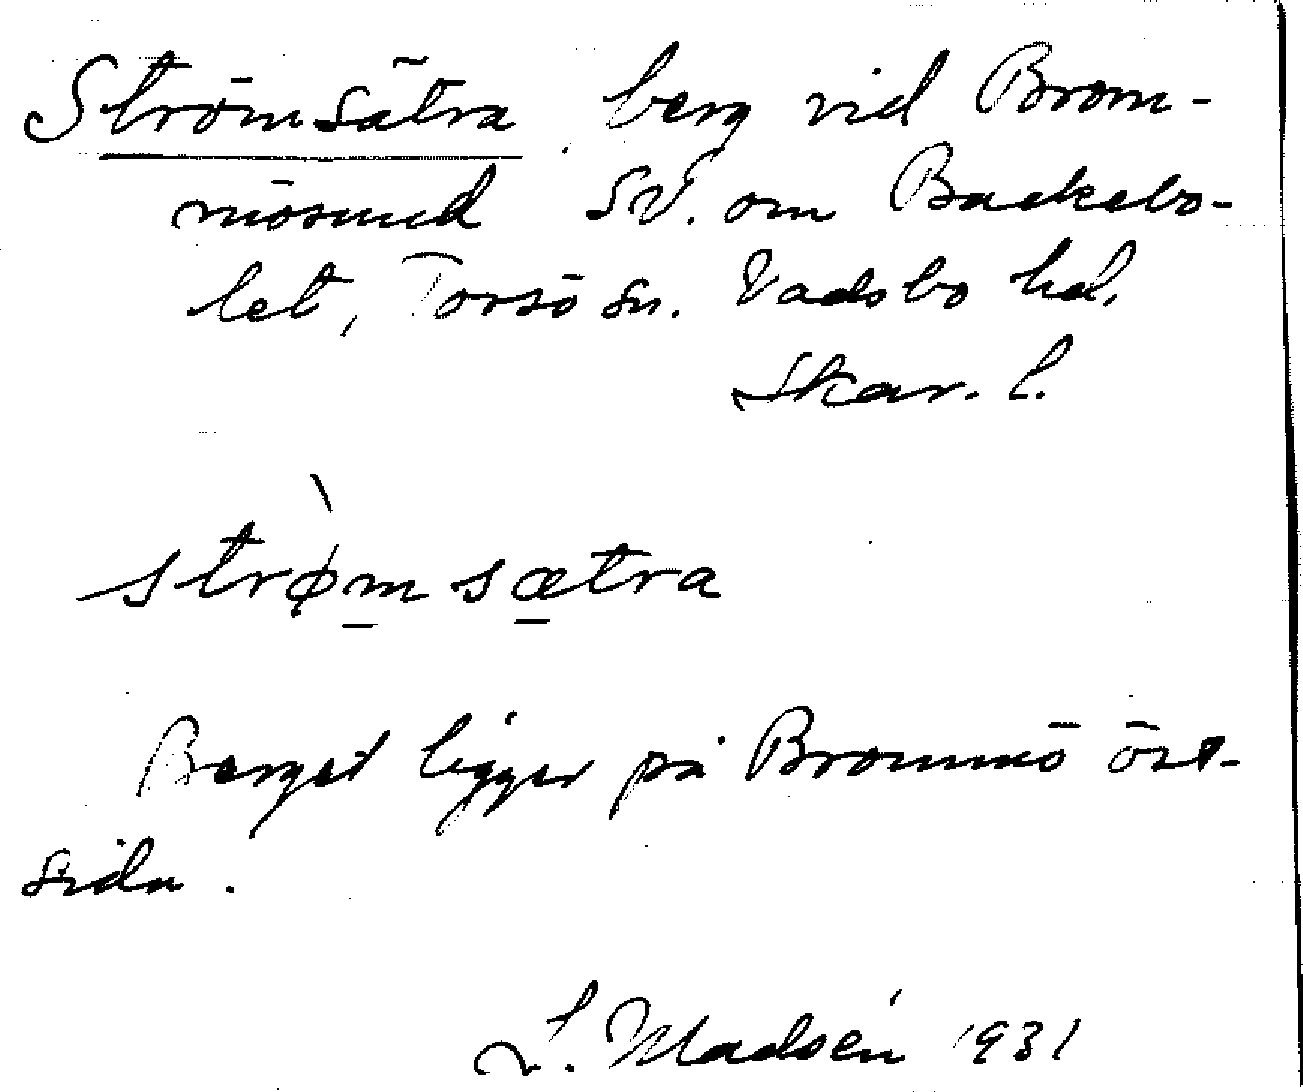 Strömsätra berg vid Brom-
mösund SV. om Backebo-
let, Torsö sn. Vadsbo hd.
Skar. l.
strø̀m̲sæ̲tra
Berget ligger på Brommö öst-
sida.
L. Madsén 1931